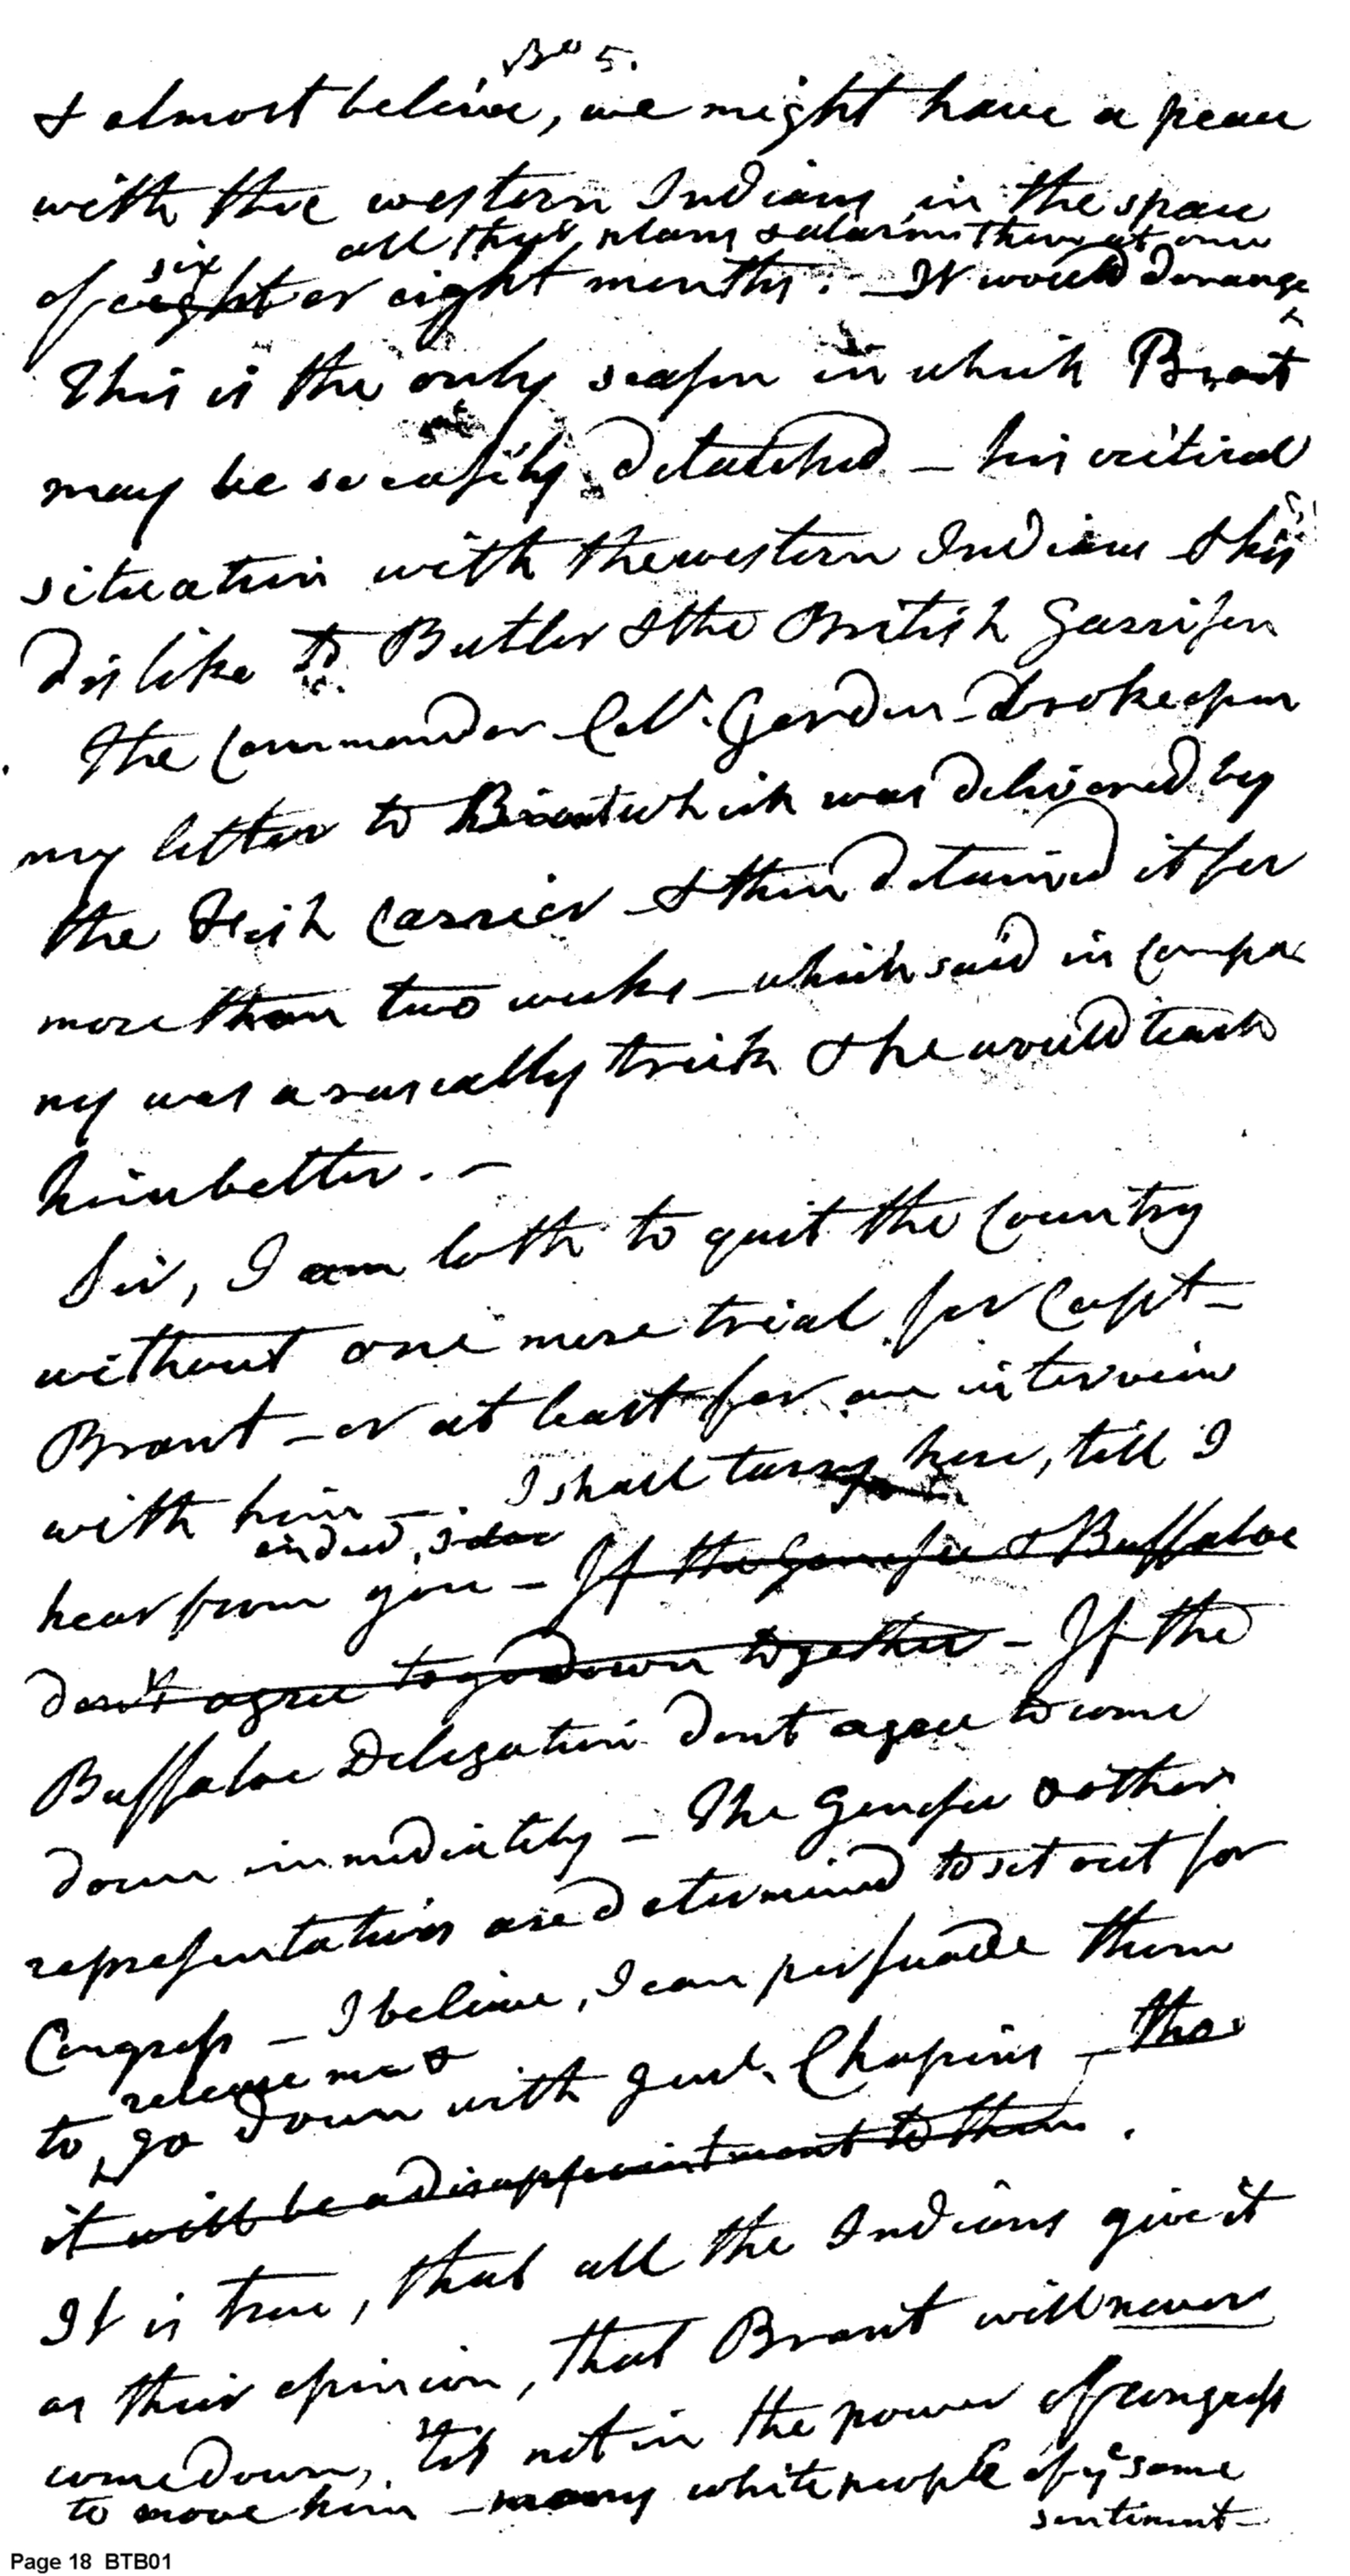 No 5.
I almost believe, we might have a peace
with the western Indians in the space
all their plans & alarm them at once
six
of eight or eight months. - It would derange
This is the only season in which Brant
may be so easily detatched - his critical
situation with the western Indians & his
dislike to Butler & the British Garrison
The Commander Col. Gordon - broke open
my letter to Brant which was delivered by
the Irish Carrier & then detained it for
more than two weeks - which said in compa
ny was a rascally trick & he would teach
him better. -
Sir, I am loth to quit the Country
without one more trial for Capt -
Brant - or at least for an interview
with him - . I shall tarry here, till I
indeed, I
hear from you - If the Genesee & Buffaloe
don't agree to go down together - If the
Buffaloe Delegation dont agree to come
down immediately - The Genesee & other
representatives are determined to set out for
Congress - I believe, I can persuade them
release me &
to go down with Genl. Chapins - tho
it will be a disappointment to them .
It is true, that all the Indians give it
as their opinion, that Brant will never
come down, 'tis not in the power of Congress
to move him - many white people of ye same
sentiment -
Page 18 BTB01